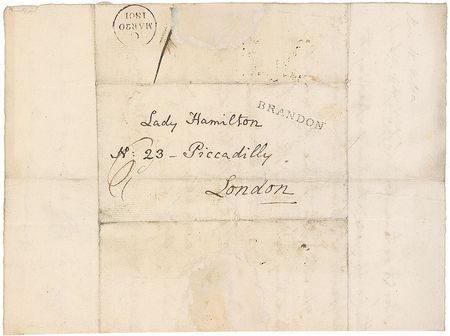 C
MAR20
1801
BRANDON
Lady Hamilton
No: 23 - Piccadilly
London